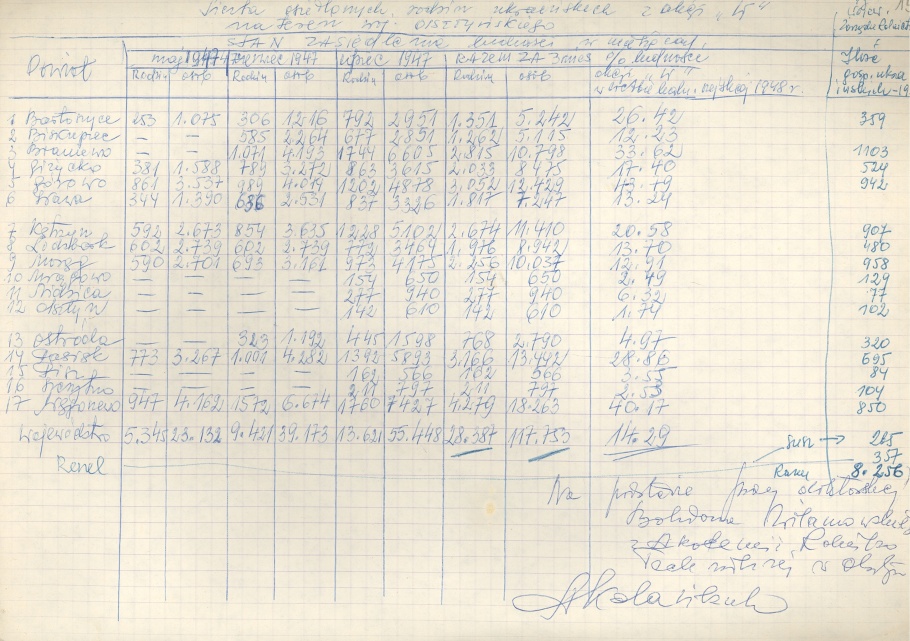 osiedlonych rodzin ukraińskich z akcji „W"
na teren woj. olsztyńskiego
STAN ZASIEDLENIA ludności w miesiącach
Powiat maj 1947 czerwiec 1947 lipiec 1947 RAZEM ZA 3 mies % ludności Ilość
Rodzin osób Rodzin osób Rodzin osób Rodzin osób akcji „W" gosp.
1948 r.
1 Bartoszyce 253 1.075 306 1216 792 2951 1.351 5.242 26.42 359
2 Biskupiec — — 585 2.264 677 2851 1.262 5.115 12.23
3 Braniewo — — 1.071 4.193 1744 6605 2.815 10.798 33.62 1103
4 Giżycko 381 1.588 789 3.272 863 3615 2.033 8475 17.40 524
5 Górowo 861 3.537 989 4.014 1202 4878 3.052 12.429 942
6 Iława 344 1.390 636 2.531 837 3326 1.817 7247 13.24
7 Kętrzyn 592 2.673 854 3.635 1228 5102 2.674 11.410 20.58 907
8 Lidzbark 602 2.739 602 2.739 772 3469 1.976 8.942 13.70 480
9 Morąg 590 2.701 693 3.161 973 4175 2.256 10.037 12.91 958
10 Mrągowo — — — — 154 650 154 650 2.49 129
11 Nidzica — — — — 277 940 277 940 6.32 77
12 Olsztyn — — — — 142 610 142 610 1.74 102
13 Ostróda — — 323 1.192 445 1598 768 2.790 4.97 320
14 Pasłęk 773 3.267 1.001 4.282 1392 5893 3.166 13.442 28.86 695
15 Pisz — — — — 162 566 162 566 3.55 84
16 Szczytno — — — — 211 797 211 797 2.53 104
17 Węgorzewo 947 4.162 1572 6.674 1760 7427 4.279 18.263 40.17 850
Województwo 5.345 23.132 9.421 39.173 13.621 55.448 28.387 117.753 14.29
Susz → 265
357
Razem 8.256
Na podstawie pracy doktorskiej
Bohdana
z Akademii Rolniczo
Technicznej w Olsztyn